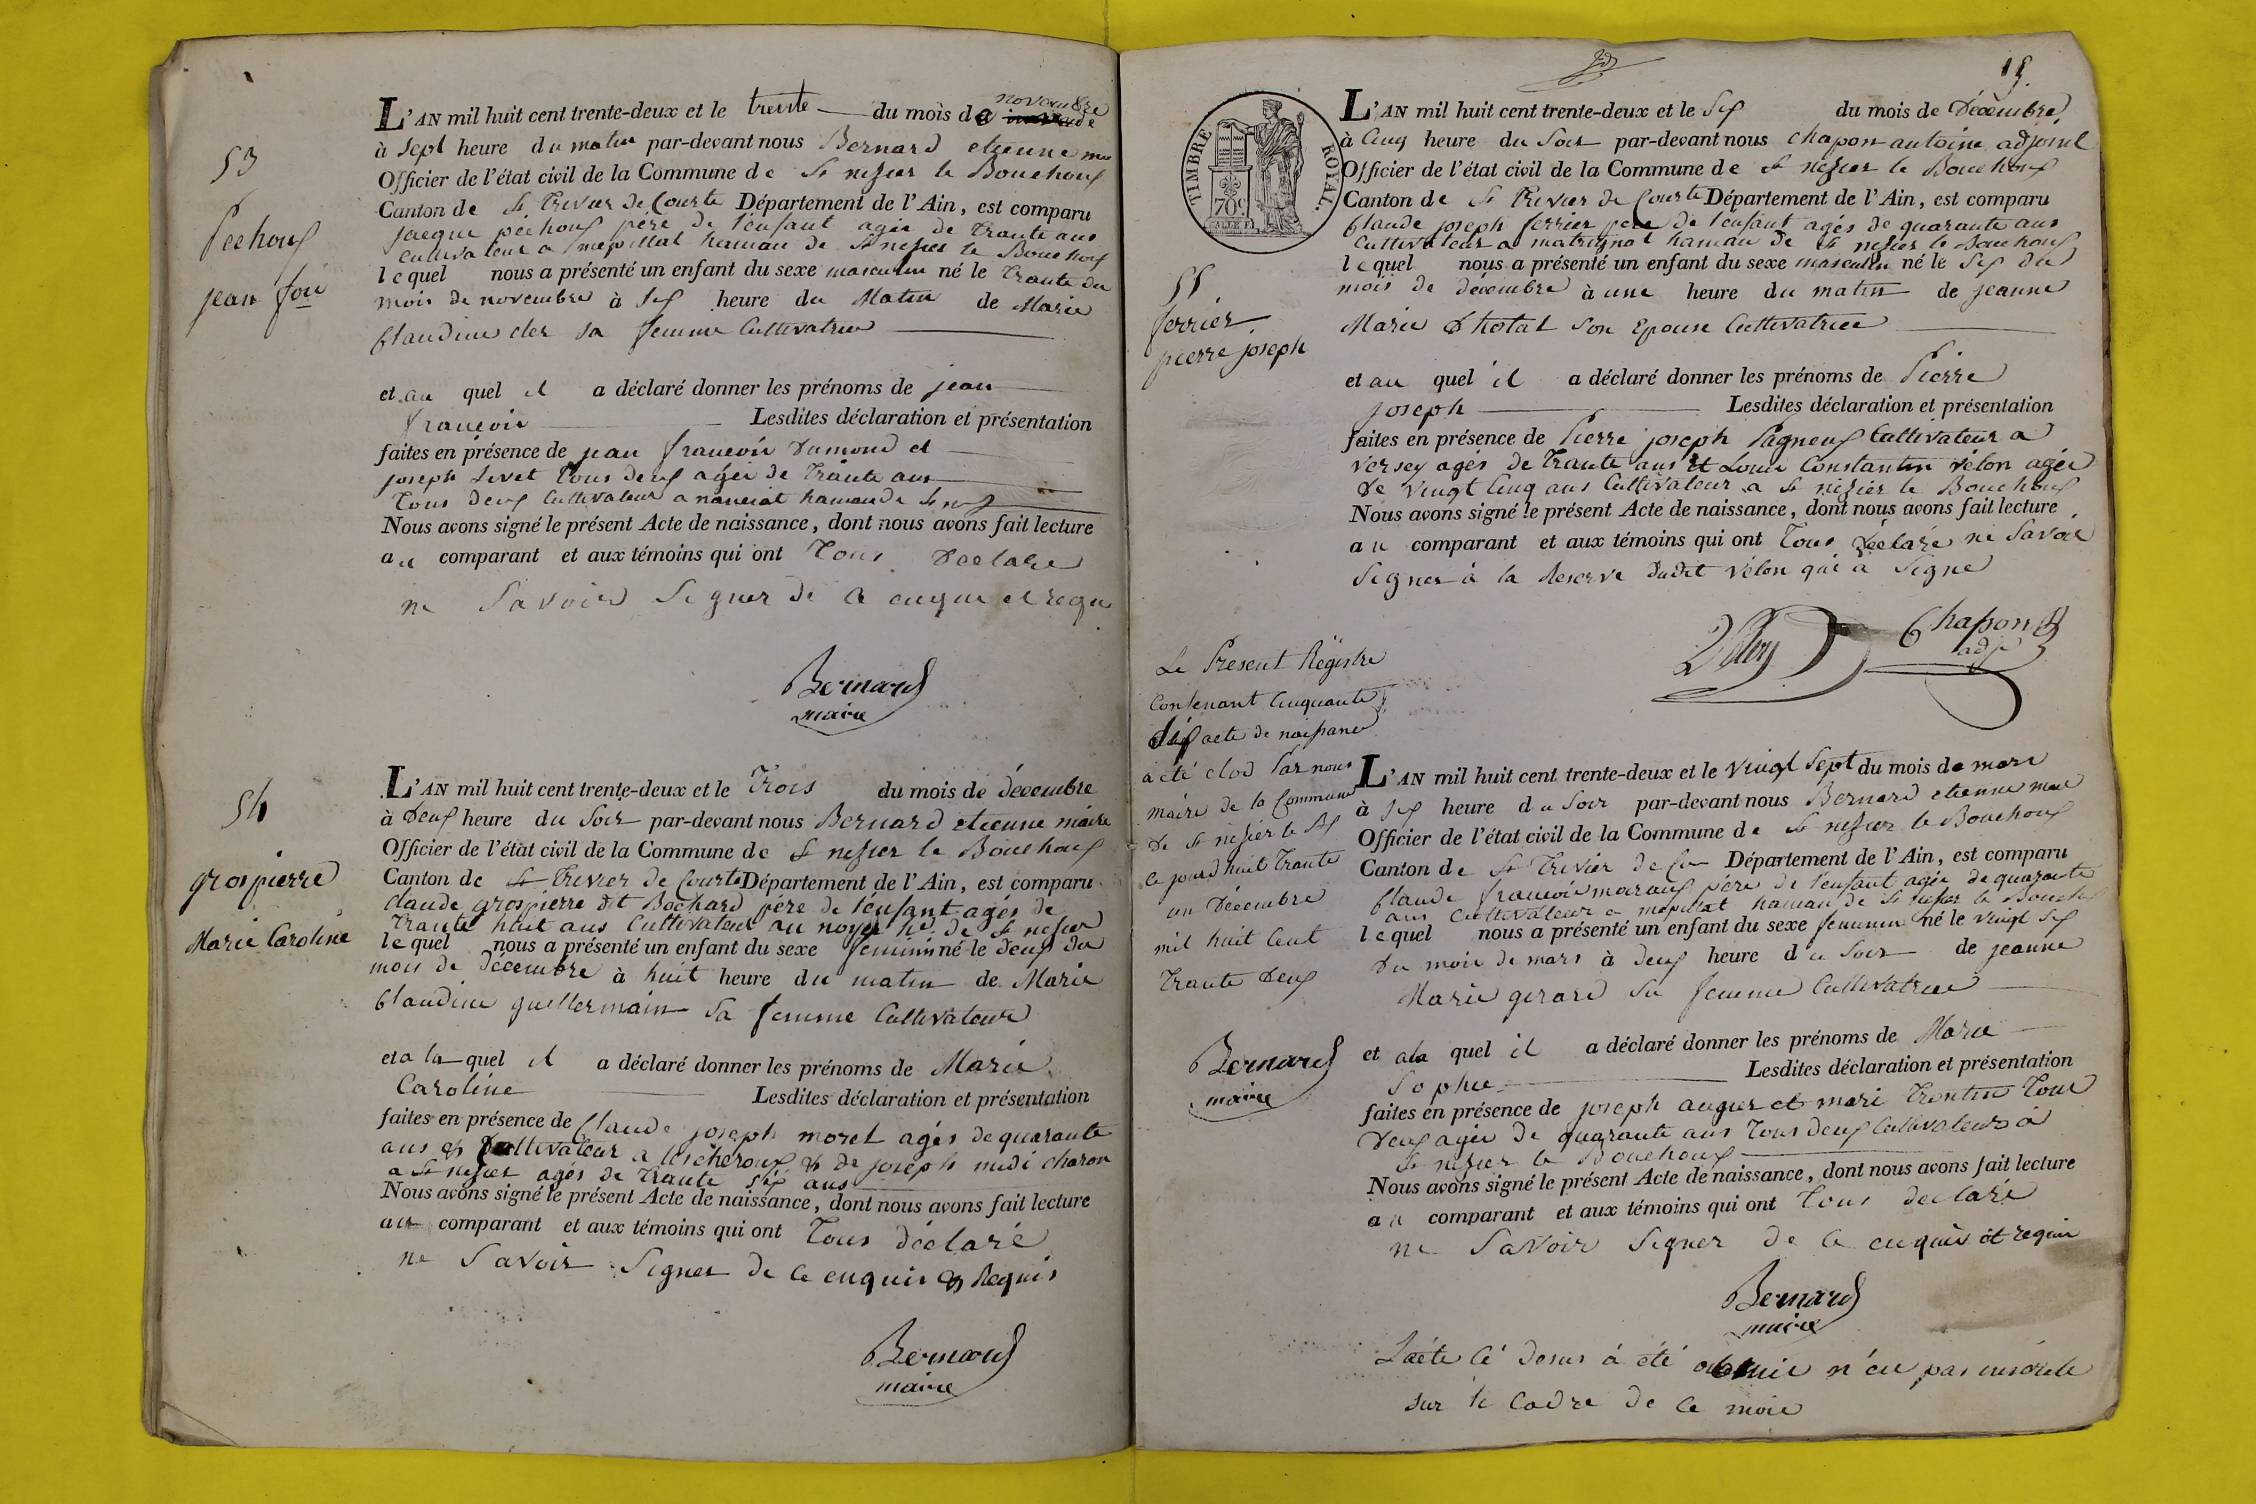 53
Pechoux
jean foi
L'AN mil huit cent trente-deux et le trente du mois de novembre
à sept heure du matin par-devant nous Bernard etienne
Officier de l'état civil de la Commune de St nizier le Bouchoux
Canton de St Trivier de Courte Département de l'Ain, est comparu
jacque péchoux pére de l'enfant agée de trante ans
cultivateur a mépillat hamau de St nizier le Bouchoux
lequel nous a présenté un enfant du sexe masculin né le trante du
mois de novembre à six heure du Matin de Marie
Claudine cler sa femme Cultivatrice
et au quel il a déclaré donner les prénoms de jean
francois Lesdites déclaration et présentation
faites en présence de jean francois Dumond et
joseph Livet tous deux agée de trante ans
tous deux Cultivateur a hamau de St
Nous avons signé le présent Acte de naissance, dont nous avons fait lecture
au comparant et aux témoins qui ont tous Declare
ne Savoir Signer de ce enquit et requi
Bernard
maire
54
grospierre
Marie Caroline
L'AN mil huit cent trente-deux et le Trois du mois de décembre
à Deux heure du Soir par-devant nous Bernard etienne maire
Officier de l'état civil de la Commune de St nizier le Bouchoux
Canton de St Trivier de Courte Département de l'Ain, est comparu
claude grospierre dit Bochard pére de l'enfant agés de
trante huit ans Cultivateur au noyer hau de St nizier
lequel nous a présenté un enfant du sexe feminin né le deux du
mois de décembre à huit heure du matin de Marie
Claudine guillermain sa femme Cultivateur
et a la quel il a déclaré donner les prénoms de Marie
Caroline Lesdites déclaration et présentation
faites en présence de Claude joseph morel agés de quarante
ans & Cultivateur a lescheroux & de joseph midi charon
a St nizier agés de trante six ans
Nous avons signé le présent Acte de naissance, dont nous avons fait lecture
au comparant et aux témoins qui ont Tous déclaré
ne Savoir Signer de ce enquis & Requis
Bernard
maire
TIMBRE ROYAL.
70c.
55
ferrier
pierre joseph
L'AN mil huit cent trente-deux et le Six du mois de Décembre
à Cinq heure du Soir par-devant nous chapon antoine adjoint
Officier de l'état civil de la Commune de St nizier le Bouchoux
Canton de St Trivier de Courte Département de l'Ain, est comparu
Claude joseph ferrier pere de l'enfant agés de quarante ans
Cultivateur a matrignat hamau de St nizier le Bouchoux
lequel nous a présenté un enfant du sexe masculin né le Six du
mois de décembre à une heure du matin de jeanne
Marie Dhotal son Epouse Cultivatrice
et au quel il a déclaré donner les prénoms de Pierre
joseph Lesdites déclaration et présentation
faites en présence de Pierre joseph Pagneux Cultivateur a
Versey agés de trante ans et Louis Constantin vélon agée
de vingt Cinq ans Cultivateur a St nizier le Bouchoux
Nous avons signé le présent Acte de naissance, dont nous avons fait lecture
au comparant et aux témoins qui ont Tous Déclaré ne Savoir
Signer à la Reserve dudit vélon qui a Signé
Chapon
adj
Le Present Régistre
Contenant Cinquante
Six acte de naissance
a été clod Par nous
maire de la Commune
de St nizier le Bx
ce jourd huit Trante
un Décembre
mil huit Cent
Trante Deux
Bernard
maire
L'AN mil huit cent trente-deux et le vingt Sept du mois de mars
à Six heure du Soir par-devant nous Bernard etienne
Officier de l'état civil de la Commune de St nizier le Bouchoux
Canton de St Trivier de Cou Département de l'Ain, est comparu
Claude francois maraux pére de l'enfant agée de quarante
ans Cultivateur a mépillat hamau de St nizier le Bouchx
lequel nous a présenté un enfant du sexe feminin né le vingt Six
Du mois de mars à deux heure du Soir de jeanne
Marie gerard sa femme Cultivatrice
et ala quel il a déclaré donner les prénoms de Marie
Sophie Lesdites déclaration et présentation
faites en présence de joseph auger et mari Trontin Tous
Deux agée de quarante ans Tous deux Cultivateurs à
St nizier le Bouchoux
Nous avons signé le présent Acte de naissance, dont nous avons fait lecture
au comparant et aux témoins qui ont Tous declaré
ne Savoir Signer de ce enquis et requis
Bernard
maire
L'acte Cé desus à été n'eu pas
sur le Cadre de Ce mois